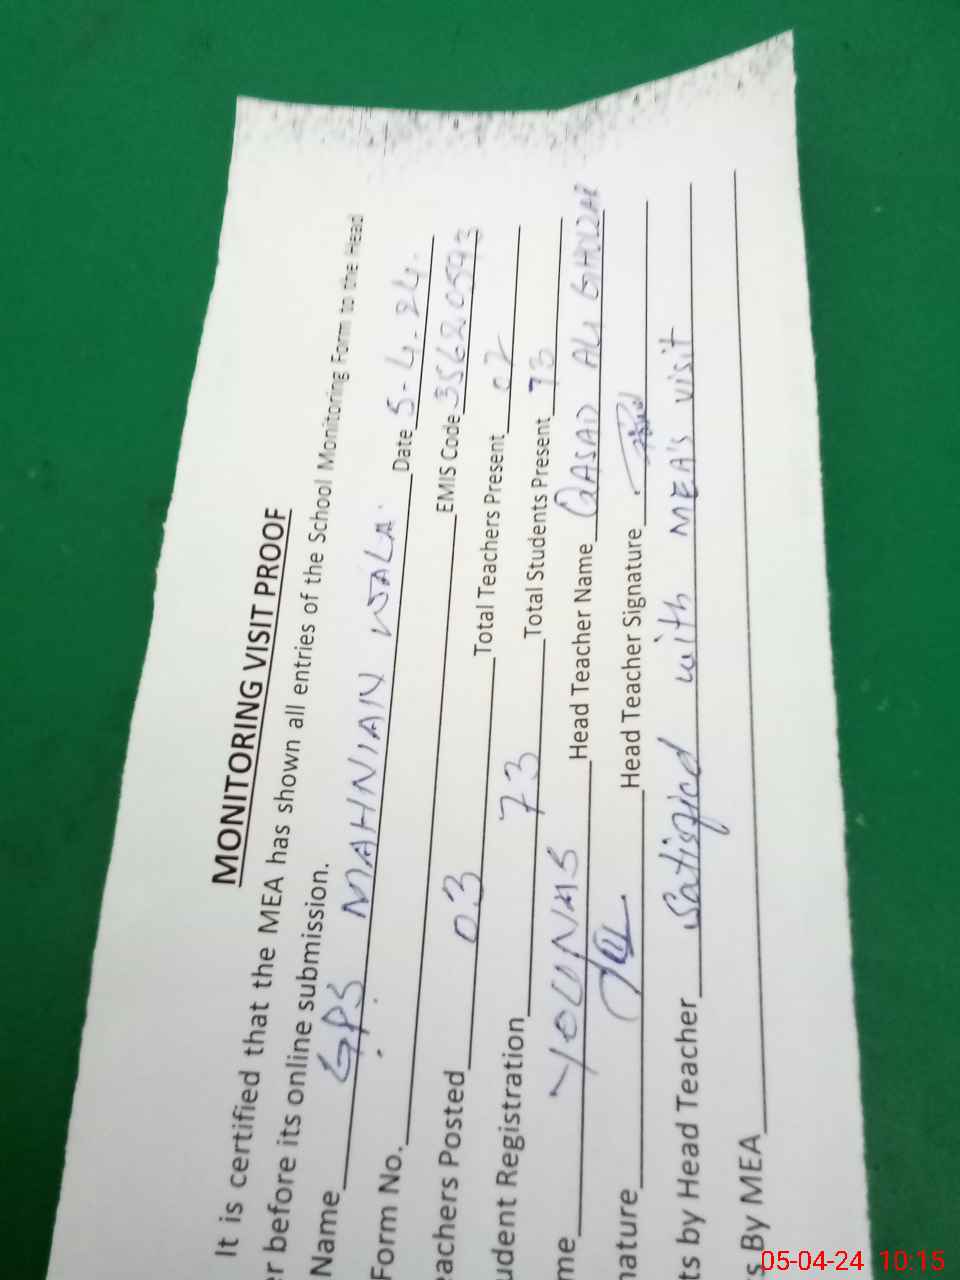 MONITORING VISIT PROOF
It is certified that the MEA has shown all entries of the School Monitoring Form to the Head
r before its online submission.
Name GPS MAHNIAN WALA. Date 5-4-24.
Form No. EMIS Code 35620593
eachers Posted 03 Total Teachers Present 02
udent Registration 73 Total Students Present 73
me YOUNAS Head Teacher Name ALI
nature Head Teacher Signature
ts by Head Teacher Satisfied with MEA's visit
s By MEA
05-04-24 10:15